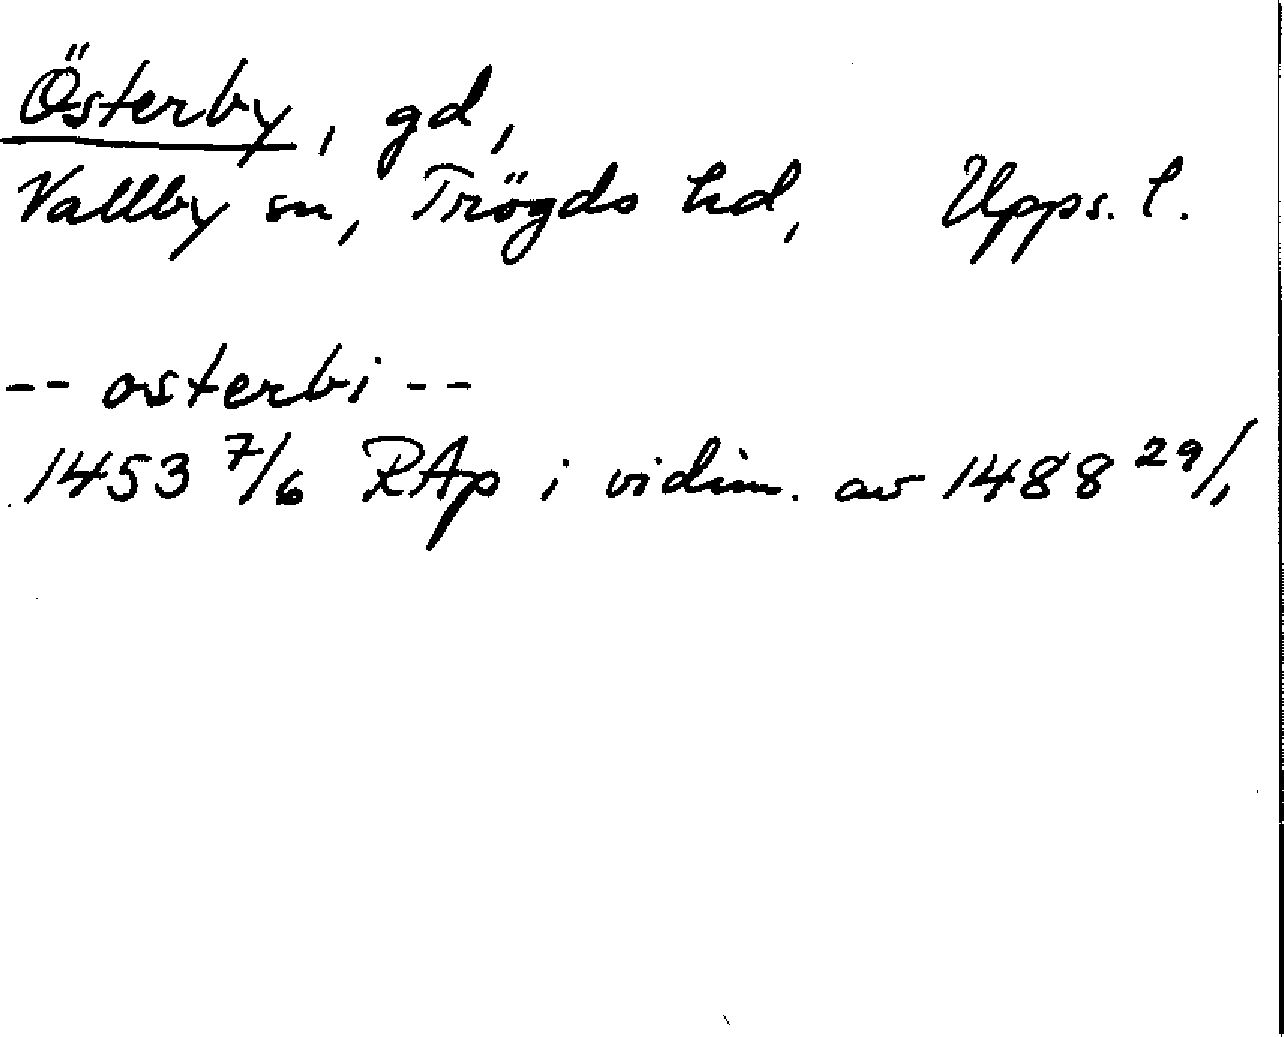 Österby, gd,
Vallby sn, Trögds hd, Upps. l.
-- osterbi --
1453 7/6 RAp i vidim. av 1488 29/1